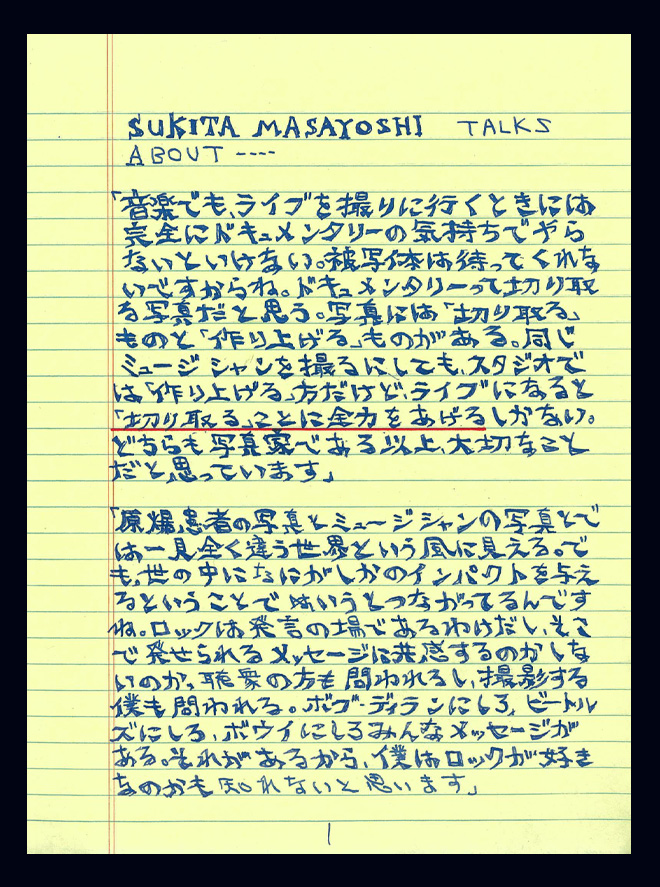 SUKITA MASAYOSHI TALKS
ABOUT ----
「音楽でも、ライブを撮りに行くときには
完全にドキュメンタリーの気持ちでやら
ないといけない。被写体は待ってくれな
いですからね。ドキュメンタリーって切り取
る写真だと思う。写真には「切り取る」
ものと「作り上げる」ものがある。同じ
ミュージシャンを撮るにしても、スタジオで
は「作り上げる」方だけど、ライブになると
「切り取る」ことに全力をあげるしかない。
どちらも写真家である以上、大切なこと
だと思っています」
「原爆患者の写真とミュージシャンの写真とで
は一見全く違う世界という風に見える。で
も、世の中になにがしかのインパクトを与え
るということではいうとつながってるんです
ね。ロックは発言の場であるわけだし、そこ
で発せられるメッセージに共感するのかしな
いのか、聴衆の方も問われるし、撮影する
僕も問われる。ボブ・ディランにしろ、ビートル
ズにしろ、ボウイにしろみんなメッセージが
ある。それがあるから、僕はロックが好き
なのかも知れないと思います」
1